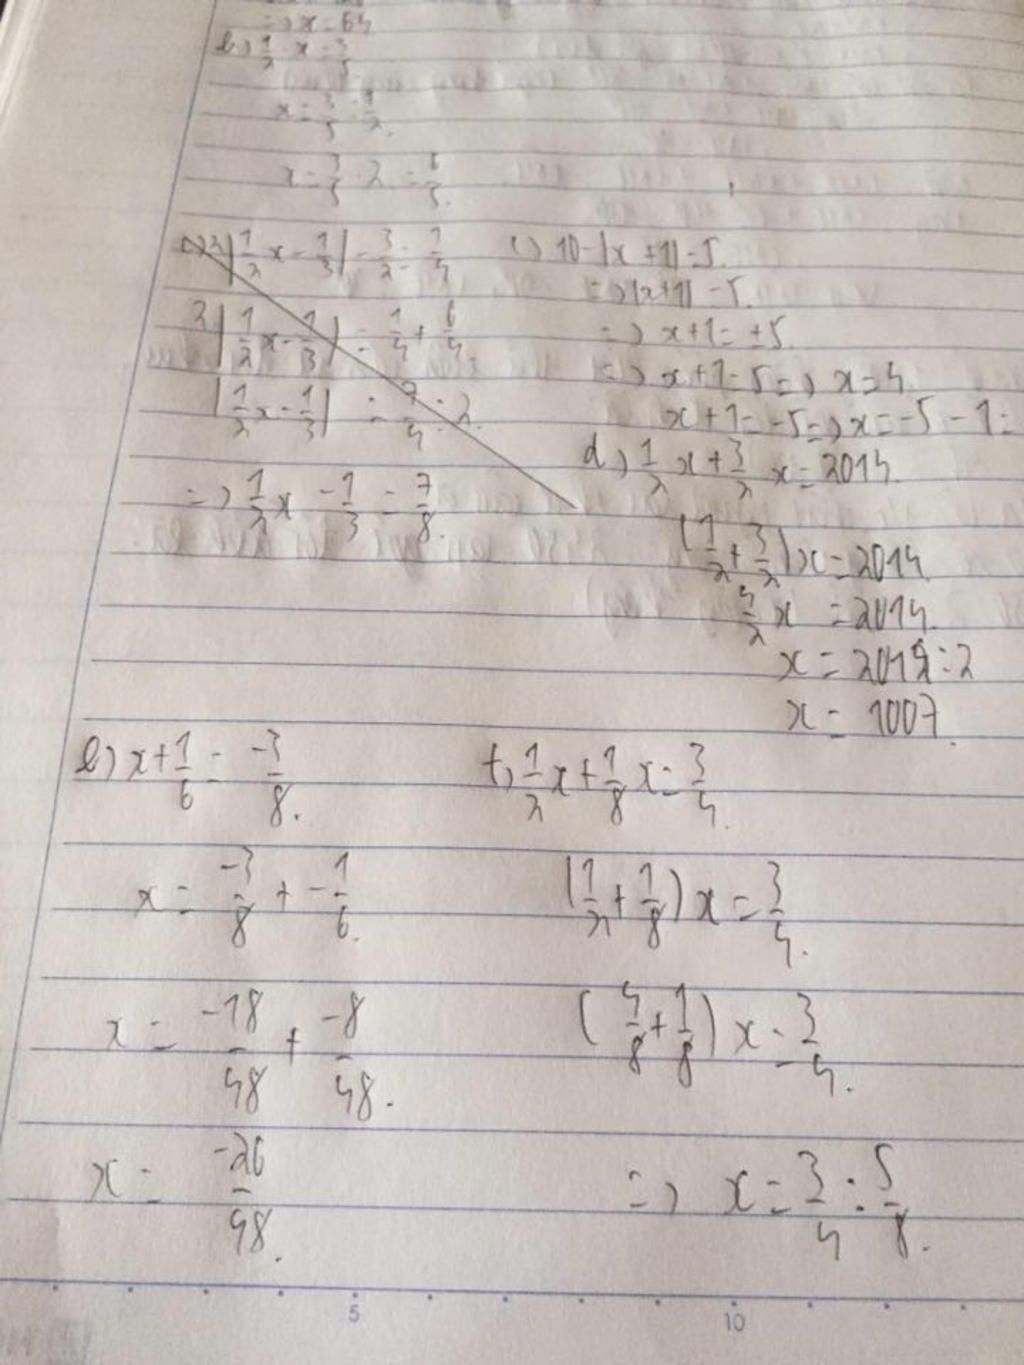 => x = 64
b) 1/2 · x = 3/5
x = 3/5 : 1/2.
x = 3/5 · 2 = 6/5.
2|1/2 x - 1/3| - 3/2 = 1/4
2|1/2 x - 1/3| = 1/4 + 6/4
|1/2 x - 1/3| = 7/4 : 2
=> 1/2 x - 1/3 = 7/8.
c) 10 - |x + 1| = 5.
=> |x+1| = 5.
=> x+1 = ±5.
=> x+1 = 5 => x = 4.
x+1 = -5 => x = -5 - 1 =
d) 1/2 x + 3/2 x = 2014.
(1/2 + 3/2) x = 2014
4/2 x = 2014.
x = 2014 : 2
x = 1007.
e) x + 1/6 = -3/8.
x = -3/8 + -1/6.
x = -18/48 + -8/48.
x = -26/48.
f) 1/2 x + 1/8 x = 3/4.
(1/2 + 1/8) x = 3/4.
(4/8 + 1/8) x = 3/4.
=> x = 3/4 : 5/8.
5 10